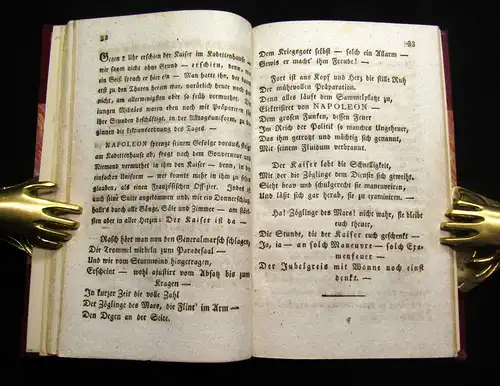 32
Gegen 8 Uhr erschien der Kaiser im Kadettenhause —
wir sagen nicht ohne Grund — erschien, denn, wie
ein Geist sprach er hier ein — Man hatte ihn, der fast
erst zu den Thoren herein war, natürlich heute noch
nicht, am allerwenigsten aber so früh vermuthet. Die
militairischen Novizen waren eben noch mit Präparation für
ihre Stunden beschäftigt, in der Alltagsuniform, zu be-
ginnen die Lektionordnung des Tages. —
NAPOLEON sprengt seinem Gefolge vorauf, steigt
am Kadettenhause ab, fragt nach dem Gouverneur und
Niemand vermuthet in ihm den Kaiser — denn, in der
einfachen Uniform — wer konnte mehr in ihm zu sehn
glauben, als einen Französischen Offizier. Indeß ist
auch seine Suite angekommen und, wie ein Donnerschlag,
hallt's durch alle Gänge, Säle und Zimmer — am lau-
testen aber in alle Herzen: Der Kaiser ist da —
Rasch hört man nun den Generalmarsch schlagen,
Die Trommel wirbeln zum Paradesaal —
Und wie vom Sturmwind hingetragen,
Erscheint — wohl ajustirt vom Absatz bis zum
Kragen —
In kurzer Zeit die volle Zahl
Der Zöglinge des Mars, die Flint' im Arm —
Den Degen an der Seite.
33
Dem Kriegsgott selbst — solch ein Allarm —
Gewis er macht' ihm Freude! —
Fort ist aus Kopf und Herz die stille Ruh
Der mühevollen Präparation.
Denn alles läuft dem Sammelplatze zu,
Elektrisirt von NAPOLEON —
Dem großen Funken, dessen Feuer
Im Reich der Politik so manches Ungeheuer,
Das ihm getrotz und mächtig sich genannt,
Mit seinem Fluidum verbrannt.
Der Kaiser lobt die Schnelligkeit,
Mit der die Zöglinge dem Dienste sich geweiht,
Sieht brav und schulgerecht sie manœuvriren,
Und läßt sich gar herab, sie zu examiniren. —
Ha! Zöglinge des Mars! nicht wahr, sie bleibe
euch theuer,
Die Stunde, die der Kaiser euch geschenkt —
Ja, ja — an solch Maneuvre — solch Exa-
menfeuer —
Der Jubelgreis mit Wonne noch einst
denkt. —